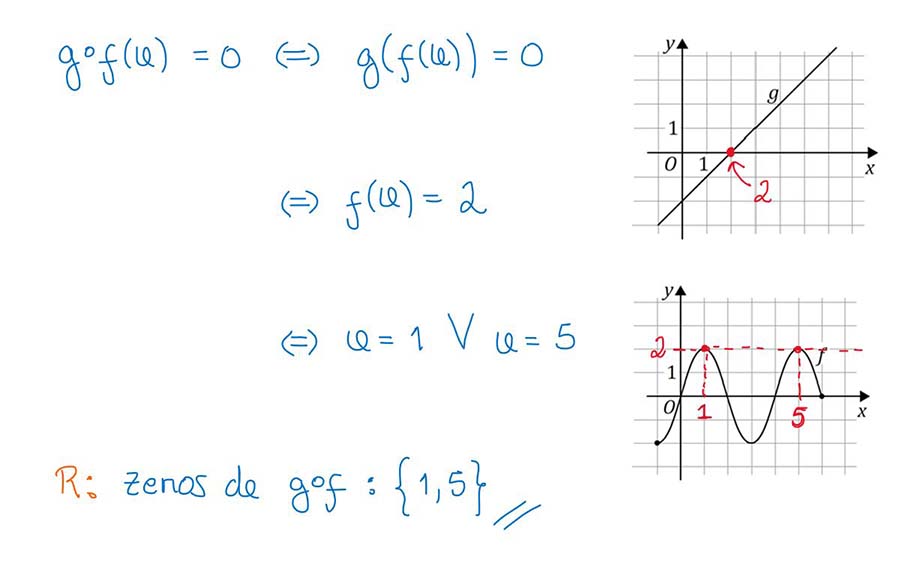 g∘f(x) = 0 ⇔ g(f(x)) = 0
⇔ f(x) = 2
⇔ x = 1 ∨ x = 5
R: zeros de g∘f : {1,5}
y
g
1
O 1 x
2
y
2 f
1
O 1 5 x